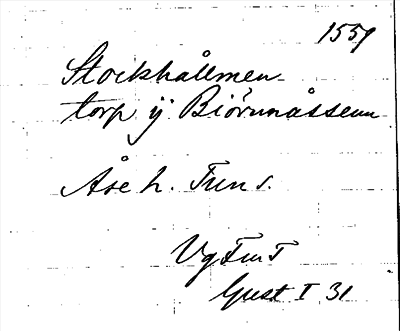 1559
Stockhållmen
torp ij Biörnnåssenn
Åse h. Tun s.
VgFmT
Gust I 31